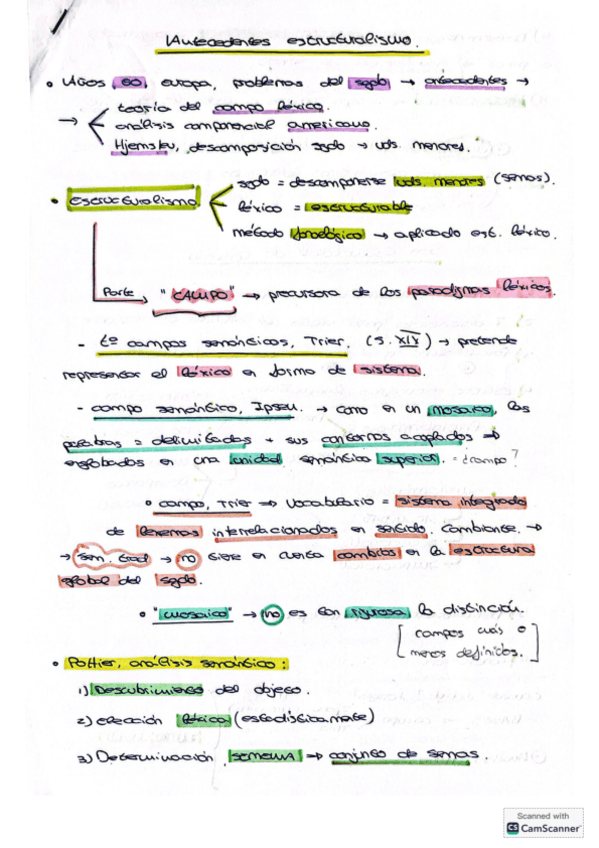 Antecedentes estructuralismo.
• Años 60, europa, problemas del sgdo → antecedentes →
teoría del campo léxico.
→ análisis componencial americano.
Hjemslev, descomposición sgdo → uds. menores.
sgdo = descomponerse uds. menores (semas).
• estructuralismo léxico = estructurable
método fonológico → aplicado est. léxico.
Parte "CAMPO" → precursora de los paradigmas léxicos.
- tª campos semánticos, Trier, (s. XIX) → pretende
representar el léxico en forma de sistema.
- campo semántico, Ipsen. → como en un mosaico, las
palabras = delimitadas + sus contornos acoplados ⇒
englobados en una unidad semántica superior. = ¿campo?
• campo, Trier ⇒ vocabulario = sistema integrado
de lexemas interrelacionados en sentido. Cambiante. →
→ sem. trad → no tiene en cuenta cambios en la estructura
global del sgdo.
• "mosaico" → no es tan rigurosa la distinción.
[campos más o
menos definidos.]
• Pottier, análisis semántico:
1) Descubrimiento del objeto.
2) elección léxica (estadísticamente)
3) Determinación SEMEMA → conjunto de semas.
Scanned with
CS CamScanner